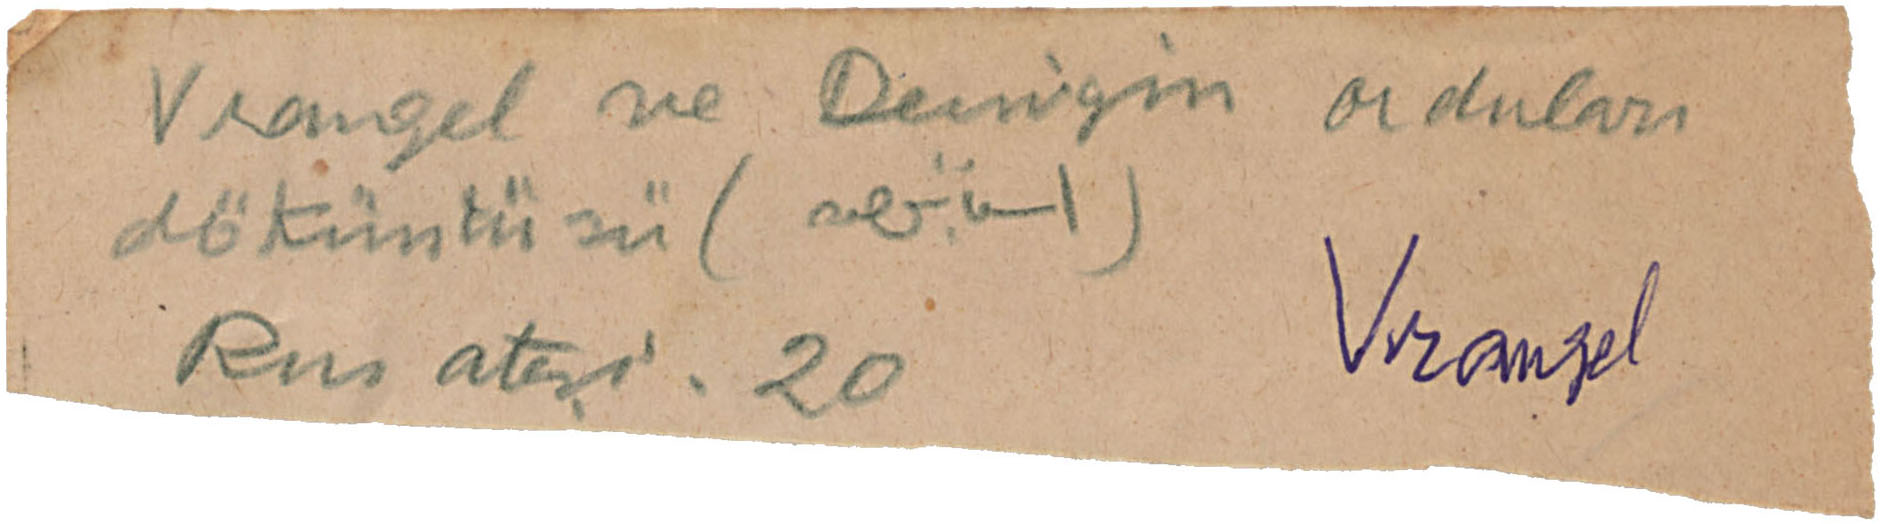 Vrangel ve Denigin orduları
döküntüsü ( )
Vrangel
Rus ateşi. 20